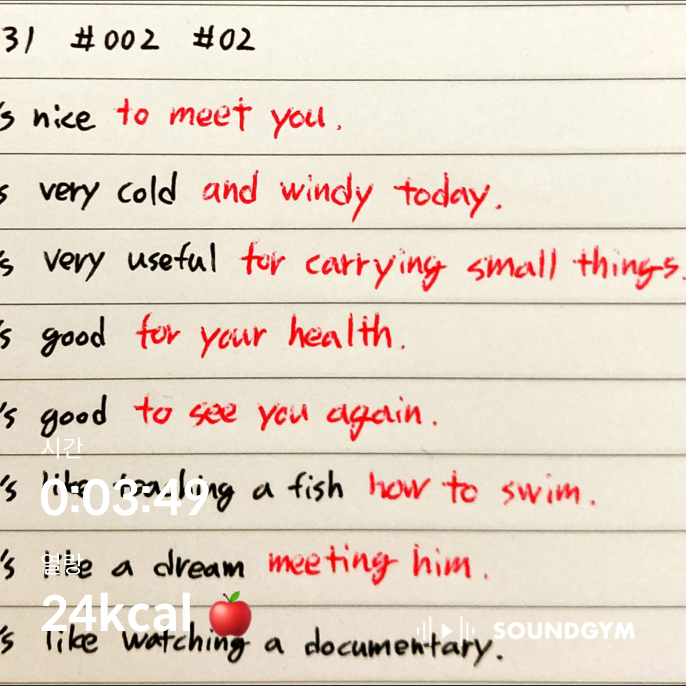 31 #002 #02
's nice to meet you.
s very cold and windy today.
's very useful for carrying small things.
's good for your health.
's good to see you again.
시간
's like teaching a fish how to swim.
0:03:49
열량
's like a dream meeting him.
24kcal
SOUNDGYM
's like watching a documentary.